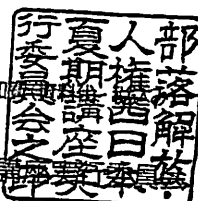 部落解放
人権西日本
夏期講座実
行委員会之印